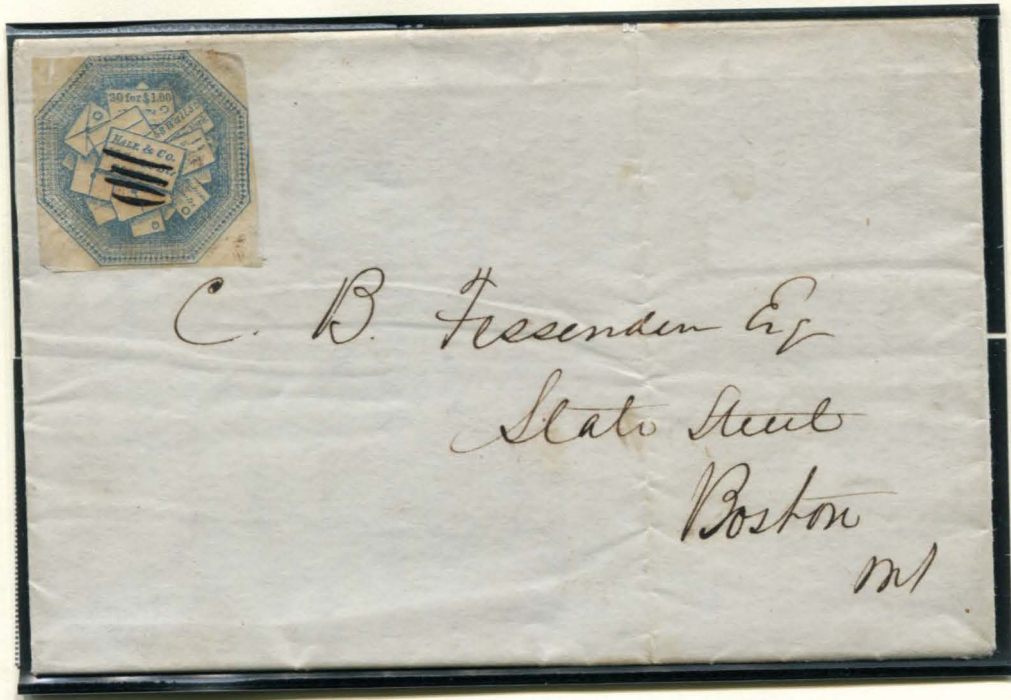 30 for $1.00
HALE & CO.
C. B. Fessenden Esq
State Street
Boston
Ms